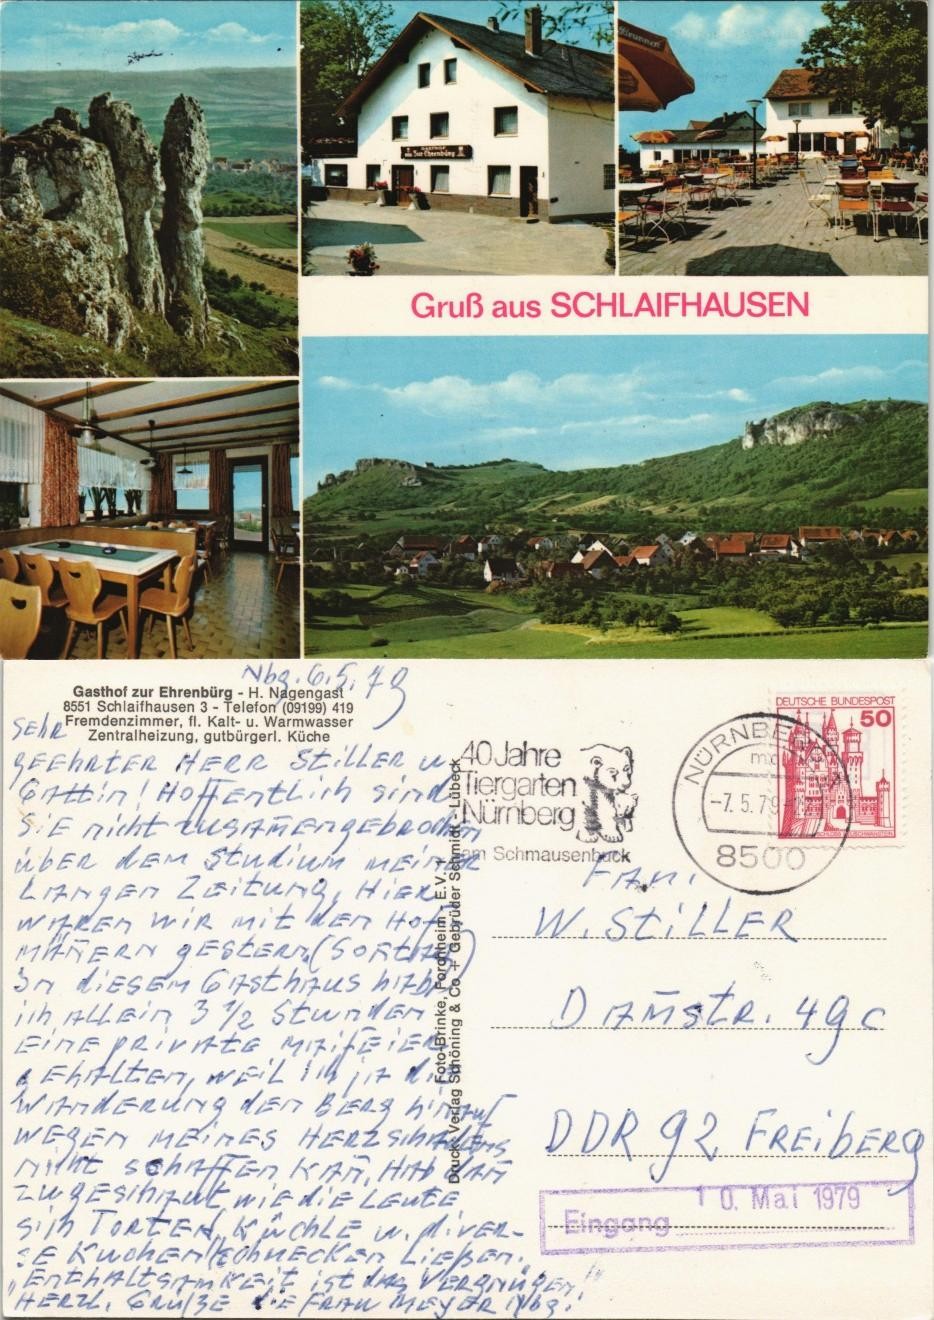 Brunnen
GASTHOF
Zur Ehrenbürg
Gruß aus SCHLAIFHAUSEN
Nbg. 6.5.79
Gasthof zur Ehrenbürg - H. Nagengast
8551 Schlaifhausen 3 - Telefon (09199) 419
Fremdenzimmer, fl. Kalt- u. Warmwasser
Zentralheizung, gutbürgerl. Küche
Sehr
geehrter Herr Stiller u.
Gattin! Hoffentlich sind
Sie nicht zusam̅engebrochen
über dem Studium meiner
langen Zeitung, Hier
waren wir mit den Hof-
män̅ern gestern (Son̅tag)
In diesem Gasthaus habe
ich allein 3 1/2 Stunden
eine private Maifeier
gehalten, weil ich ja die
Wanderung den Berg hinauf
wegen meines Herzschadens
nicht schaffen kan̅, hab dan̅
zugeschaut wie die Leute
sich Torten, Küchle u. diver-
se Kuchen schmecken ließen.
"Enthaltsamkeit ist das Vergnügen!"
Herzl. Grüße die Frau Meyer Nbg.
Foto-Brinke, Forchheim - E.V.
Druck: Verlag Schöning & Co + Gebrüder Schmidt - Lübeck
40 Jahre
Tiergarten
Nürnberg
am Schmausenbuck
NÜRNBERG
-7.5.79
8500
DEUTSCHE BUNDESPOST
50
SCHLOSS NEUSCHWANSTEIN
Fam.
W. Stiller
Dam̅str. 49c
DDR 92 Freiberg
Eingang 10. Mai 1979